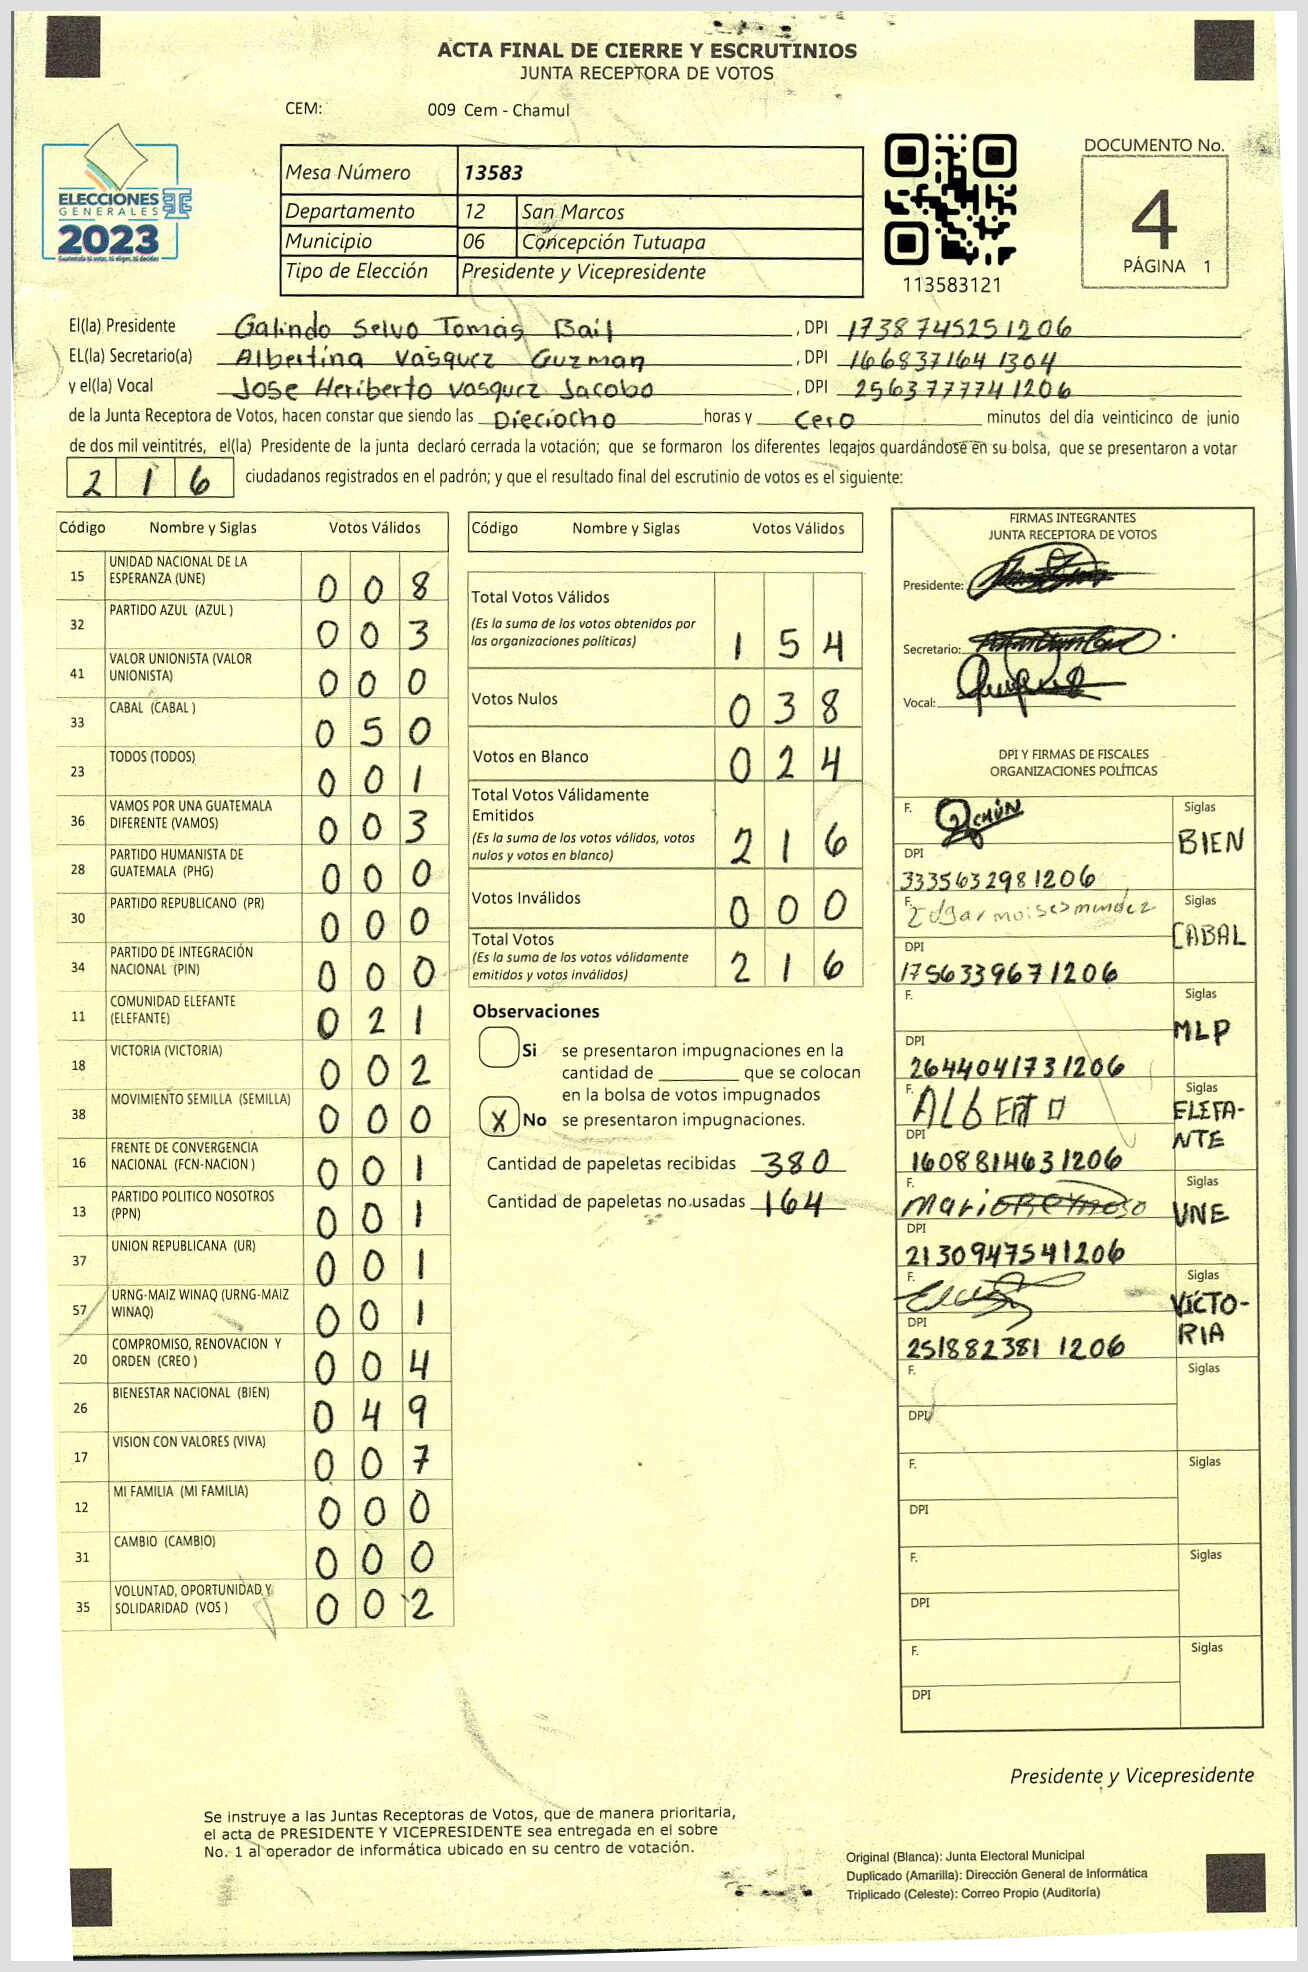 ACTA FINAL DE CIERRE Y ESCRUTINIOS
JUNTA RECEPTORA DE VOTOS
CEM: 009 Cem - Chamul
ELECCIONES
GENERALES
2023
Mesa Número 13583
Departamento 12 San Marcos
Municipio 06 Concepción Tutuapa
Tipo de Elección Presidente y Vicepresidente
113583121
DOCUMENTO No.
4
PÁGINA 1
El(la) Presidente Galindo Selvo Tomás Bail, DPI 1738745251206
EL(la) Secretario(a) Albertina Vásquez Guzman, DPI 1668371641304
y el(la) Vocal Jose Heriberto Vasquez Jacobo, DPI 2563777741206
de la Junta Receptora de Votos, hacen constar que siendo las Dieciocho horas y Cero minutos del día veinticinco de junio
de dos mil veintitrés, el(la) Presidente de la junta declaró cerrada la votación; que se formaron los diferentes legajos guardándose en su bolsa, que se presentaron a votar
216 ciudadanos registrados en el padrón; y que el resultado final del escrutinio de votos es el siguiente:
Código Nombre y Siglas Votos Válidos
15 UNIDAD NACIONAL DE LA ESPERANZA (UNE) 0 0 8
32 PARTIDO AZUL (AZUL ) 0 0 3
41 VALOR UNIONISTA (VALOR UNIONISTA) 0 0 0
33 CABAL (CABAL ) 0 5 0
23 TODOS (TODOS) 0 0 1
36 VAMOS POR UNA GUATEMALA DIFERENTE (VAMOS) 0 0 3
28 PARTIDO HUMANISTA DE GUATEMALA (PHG) 0 0 0
30 PARTIDO REPUBLICANO (PR) 0 0 0
34 PARTIDO DE INTEGRACIÓN NACIONAL (PIN) 0 0 0
11 COMUNIDAD ELEFANTE (ELEFANTE) 0 2 1
18 VICTORIA (VICTORIA) 0 0 2
38 MOVIMIENTO SEMILLA (SEMILLA) 0 0 0
16 FRENTE DE CONVERGENCIA NACIONAL (FCN-NACION ) 0 0 1
13 PARTIDO POLITICO NOSOTROS (PPN) 0 0 1
37 UNION REPUBLICANA (UR) 0 0 1
57 URNG-MAIZ WINAQ (URNG-MAIZ WINAQ) 0 0 1
20 COMPROMISO, RENOVACION Y ORDEN (CREO ) 0 0 4
26 BIENESTAR NACIONAL (BIEN) 0 4 9
17 VISION CON VALORES (VIVA) 0 0 7
12 MI FAMILIA (MI FAMILIA) 0 0 0
31 CAMBIO (CAMBIO) 0 0 0
35 VOLUNTAD, OPORTUNIDAD Y SOLIDARIDAD (VOS ) 0 0 2
Código Nombre y Siglas Votos Válidos
Total Votos Válidos
(Es la suma de los votos obtenidos por
las organizaciones políticas) 1 5 4
Votos Nulos 0 3 8
Votos en Blanco 0 2 4
Total Votos Válidamente
Emitidos
(Es la suma de los votos válidos, votos
nulos y votos en blanco) 2 1 6
Votos Inválidos 0 0 0
Total Votos
(Es la suma de los votos válidamente
emitidos y votos inválidos) 2 1 6
Observaciones
Si se presentaron impugnaciones en la
cantidad de ________ que se colocan
en la bolsa de votos impugnados
X No se presentaron impugnaciones.
Cantidad de papeletas recibidas 380
Cantidad de papeletas no usadas 164
FIRMAS INTEGRANTES
JUNTA RECEPTORA DE VOTOS
Presidente:
Secretario:
Vocal:
DPI Y FIRMAS DE FISCALES
ORGANIZACIONES POLÍTICAS
F. Siglas
BIEN
DPI
3335632981206
F. Edgar moises mendez Siglas
CABAL
DPI
1756339671206
F. Siglas
MLP
DPI
2644041731206
F. ALBERTO Siglas
ELEFA-
NTE
DPI
1608814631206
F. Mario Reynoso Siglas
UNE
DPI
2130947541206
F. Siglas
VICTO-
RIA
DPI
2518823811206
F. Siglas
DPI
F. Siglas
DPI
F. Siglas
DPI
F. Siglas
DPI
Presidente y Vicepresidente
Se instruye a las Juntas Receptoras de Votos, que de manera prioritaria,
el acta de PRESIDENTE Y VICEPRESIDENTE sea entregada en el sobre
No. 1 al operador de informática ubicado en su centro de votación.
Original (Blanca): Junta Electoral Municipal
Duplicado (Amarilla): Dirección General de Informática
Triplicado (Celeste): Correo Propio (Auditoría)